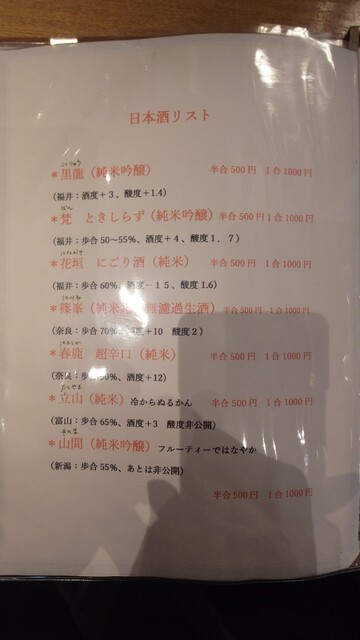 日本酒リスト
こくりゅう
*黒龍（純米吟醸） 半合500円 1合1000円
（福井：酒度＋3、酸度＋1.4）
ぼん
*梵 ときしらず（純米吟醸） 半合500円 1合1000円
（福井：歩合50～55%、酒度＋4、酸度1．7）
はながき
*花垣 にごり酒（純米） 半合500円 1合1000円
（福井：歩合60%、酒度－15、酸度1.6）
*篠峯（純米 無濾過生酒） 半合500円 1合1000円
（奈良：歩合70%、酒度+10 酸度2）
*春鹿 超辛口（純米） 半合500円 1合1000円
（奈良：歩合 0%、酒度+12）
たてやま
*立山（純米）冷からぬるかん 半合500円 1合1000円
（富山：歩合65%、酒度+3 酸度非公開）
*山間（純米吟醸）フルーティーではなやか
（新潟：歩合55%、あとは非公開）
半合500円 1合1000円